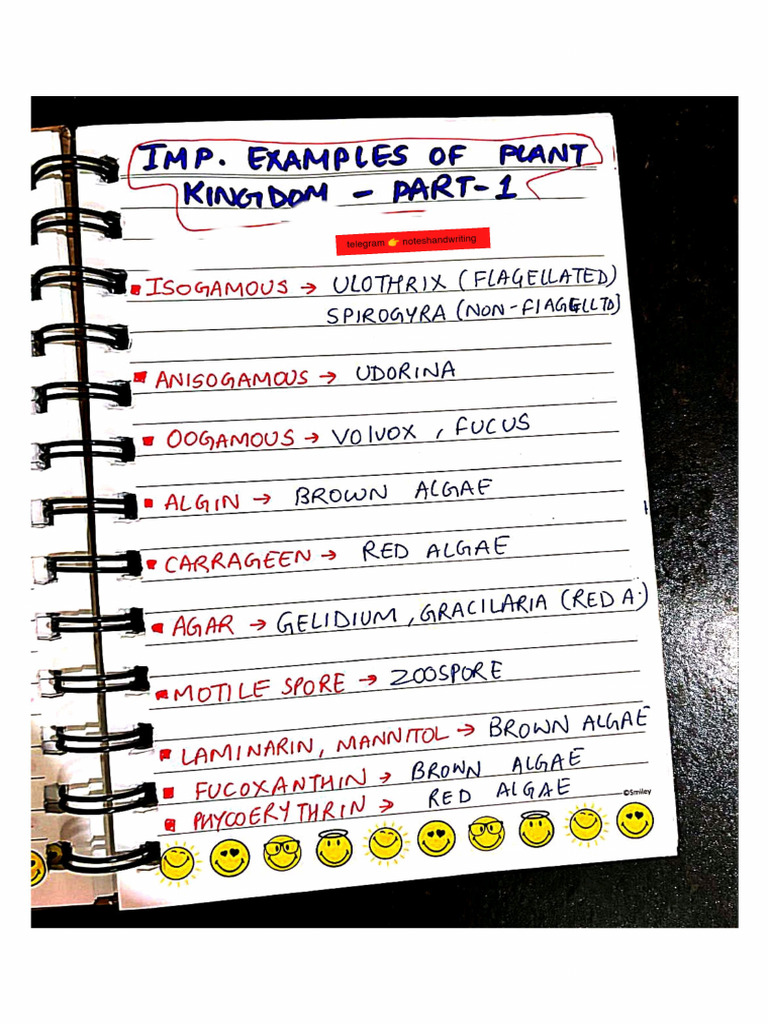 IMP. EXAMPLES OF PLANT
KINGDOM - PART-1
telegram 👉 noteshandwriting
▪ ISOGAMOUS → ULOTHRIX (FLAGELLATED)
SPIROGYRA (NON-FlAGELLTD)
▪ ANISOGAMOUS → UDORINA
▪ OOGAMOUS → VOLVOX , FUCUS
▪ ALGIN → BROWN ALGAE
▪ CARRAGEEN → RED ALGAE
▪ AGAR → GELIDIUM, GRACILARIA (RED A.)
▪ MOTILE SPORE → ZOOSPORE
▪ LAMINARIN, MANNITOL → BROWN ALGAE
▪ FUCOXANTHIN → BROWN ALGAE
▪ PHYCOERYTHRIN → RED ALGAE
©Smiley